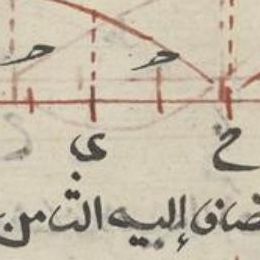 ح ح
ح ى
ـضاف إليه الثامن